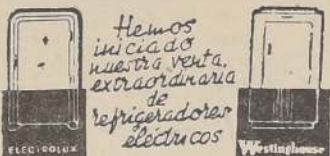 Hemos
iniciado
nuestra venta,
extraordinaria
de
refrigeradores
eléctricos
ELECTROLUX
Westinghouse